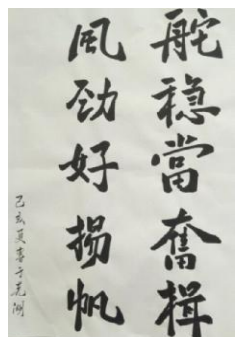 舵稳當奮楫
風劲好揚帆
己亥夏書于芜湖